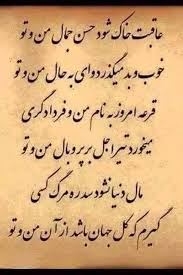 عاقبت خاک شود حسن جمال من و تو
خوب و بد میگذرد وای به حال من و تو
قرعه امروز به نام من و فردا دگری
میخورد تیر اجل بر پر و بال من و تو
مال دنیا نشود سد ره مرگ کسی
گیرم که کل جهان باشد از آن من و تو